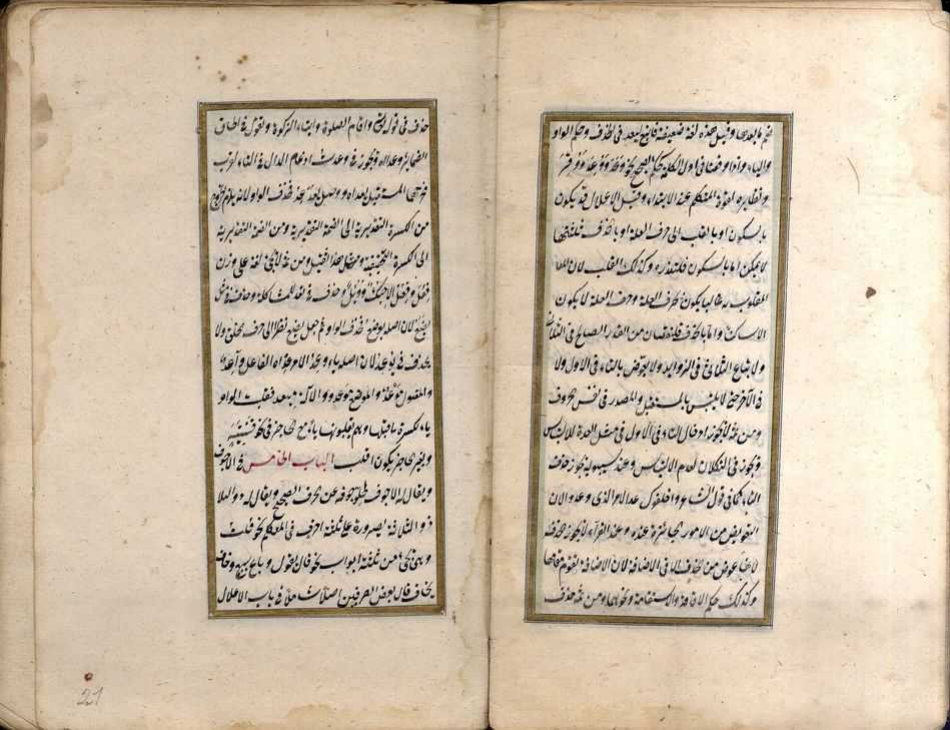 ضم ما بعدها وقيل هذه لغة ضعيفة فاتبع ليعد في الحذف وحكم الواو
والياء اذا وقعتا في اول الكلمة كحكم الصحيح نحو وعد ووعد ووقر
ونظايره لقوة المتكلم عند الابتداء وقيل الاعلال قد يكون
بالسكون او بالقلب الى حرف العلة او بالحذف فثلثتها
لا يمكن اما بالسكون فلتعذره وكذلك القلب لان
المقلوب به غالبا يكون بحرف العلة وحرف العلة لا يكون
الا ساكنا واما بالحذف فلنقصان من القدر الصالح في الثلاثي
ولاتباع الثلاثي في الزوايد ولا يعوض بالتاء في الاول ولا
في الآخر حتى لا يلتبس بالمستقبل والمصدر في نفس الحروف
ومن ثمة لا يجوز ادخال التاء في الاول في مثل العدة للالتباس
ويجوز في التكلان لعدم الالتباس وعند سيبويه يجوز حذف
التاء كما في قول الشاعر واخلفوك عد الامر الذي وعدوا لان
التعويض من الامور الجائزة عنده وعند الفراء لا يجوز حذفه
لانها عوض من الحرف الا في الاضافة لان الاضافة تقوم مقامها
وكذلك حكم الاقامة والاستقامة ونحوهما ومن ثمة حذف
حذف في قوله تعالى واقام الصلوة وايتاء الزكوة وتقول في الحاق
الضمائر وعد الى ويجوز في وعدت ادغام الدال في التاء لقرب
مخرجهما المستقبل يعد الى وصل يعد يوعد فحذف الواو لانه يلزم الخروج
من الكسرة التقديرية الى الضمة التقديرية ومن الضمة التقديرية
الى الكسرة التحقيقية ومثل هذا ثقيل ومن ثمة لا يجئ لغة على وزن
فعل وفعل الا حبك ودئل وحذف في تعد للمشاكلة وحذف في مثل
يضع لان اصله يوضع فحذف الواو ثم جعل يضع نظرا الى حرف الحلق ولا
يحذف في يوعد لان اصله يأوعد الامر عد الى الفاعل واعد
والمفعول موعود والموضع موعد والآلة ميعد فقلبت الواو
ياء لكسرة ما قبلها وهم يقلبونها ياء مع الحاجز في نحو قنية
وبغير الحاجز يكون اقلب الباب الخامس في الاجوف
ويقال له الاجوف لخلو جوفه عن الحرف الصحيح ويقال له
ذو الثلاثة لصيرورة على ثلثة احرف في المتكلم نحو قلت
وهو يجئ من ثلثة ابواب نحو قال يقول وباع يبيع وخاف
يخاف قال بعض الصرفيين اصلا شاملا في باب الاعلال
21